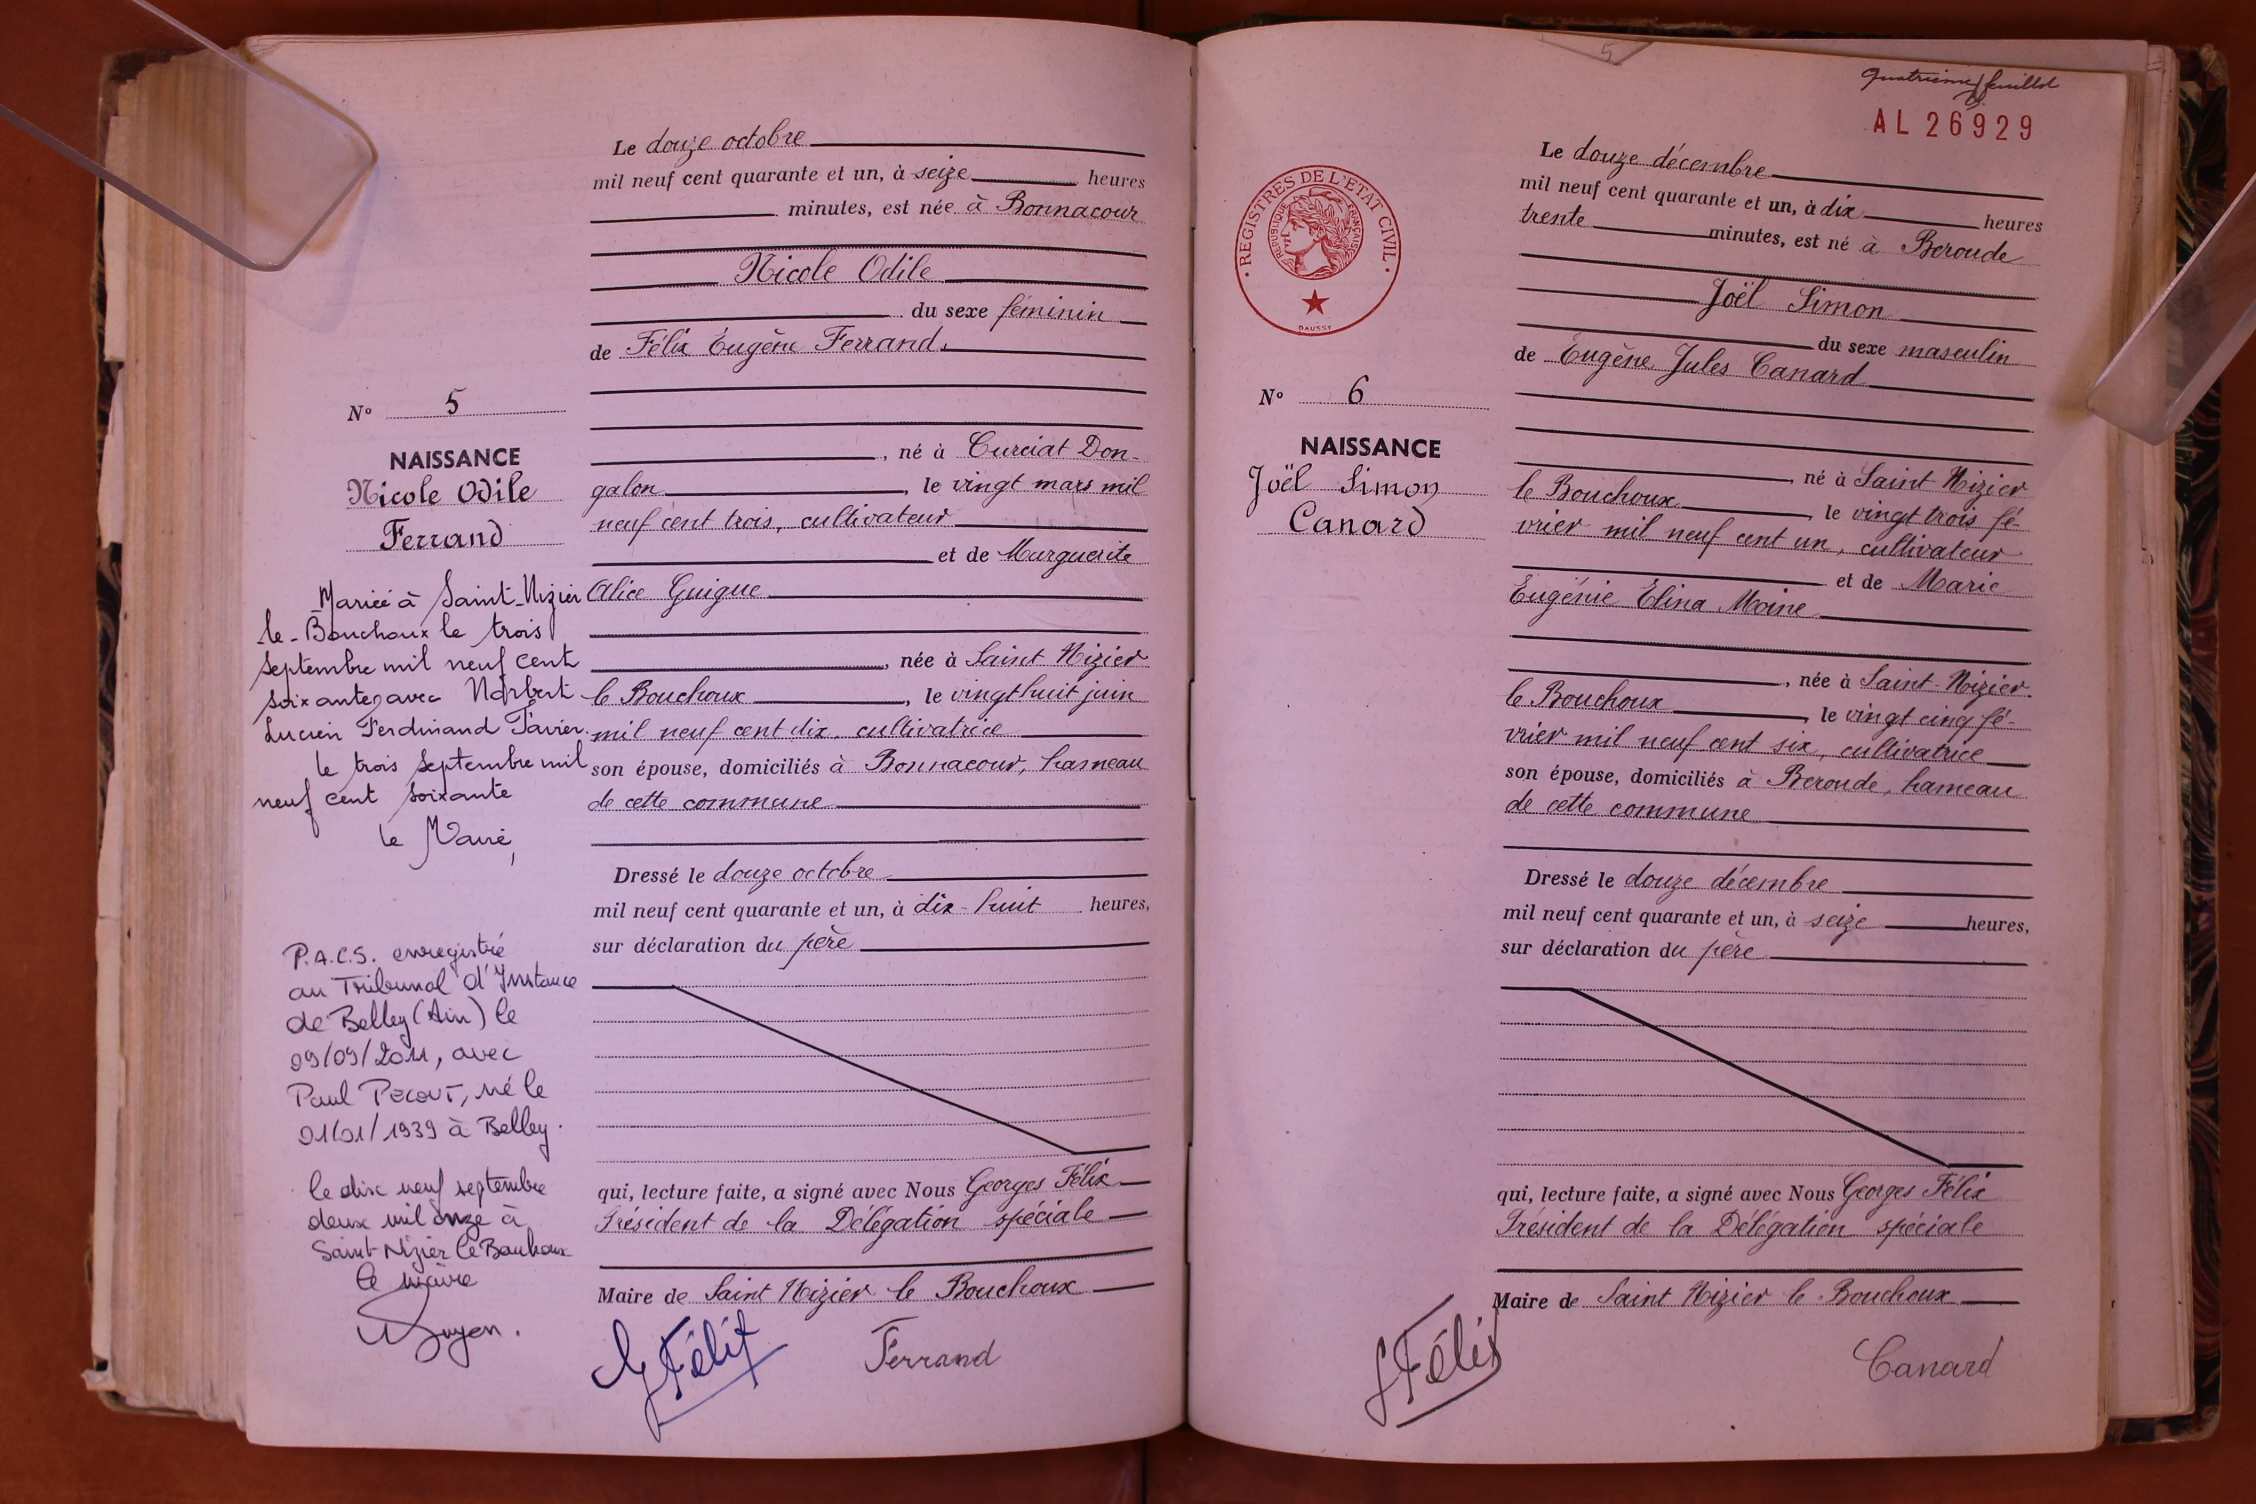 Le douze octobre
mil neuf cent quarante et un, à seize heures
minutes, est née à Bonnacour
Nicole Odile
du sexe féminin
de Félix Eugène Ferrand,
N° 5
NAISSANCE
Nicole Odile
Ferrand
, né à Curciat Don-
galon, le vingt mars mil
neuf cent trois, cultivateur
et de Marguerite
Alice Guigue
, née à Saint Nizier
le Bouchoux, le vingt huit juin
mil neuf cent dix, cultivatrice
son épouse, domiciliés à Bonnacour, hameau
de cette commune
Dressé le douze octobre
mil neuf cent quarante et un, à dix-huit heures,
sur déclaration du père
qui, lecture faite, a signé avec Nous Georges Félix
Président de la Délégation spéciale
Maire de Saint Nizier le Bouchoux
G Félix
Ferrand
Mariée à Saint-Nizier
le-Bouchoux le trois
septembre mil neuf cent
soixante, avec Norbert
Lucien Ferdinand
le trois septembre mil
neuf cent soixante
le Maire,
P.A.C.S. enregistré
au Tribunal d'Instance
de Belley (Ain) le
09/09/2011, avec
Paul PECOUT, né le
01/01/1939 à Belley.
le dix neuf septembre
deux mil onze à
Saint-Nizier le Bouhoux
le maire
quatrième feuillet
AL 26929
5
REGISTRES DE L'ÉTAT CIVIL
RÉPUBLIQUE FRANÇAISE
DAUSSY
Le douze décembre
mil neuf cent quarante et un, à dix heures
trente minutes, est né à Beroude
Joël Simon
du sexe masculin
de Eugène Jules Canard
N° 6
NAISSANCE
Joël Simon
Canard
, né à Saint Nizier
le Bouchoux, le vingt trois fé-
vrier mil neuf cent un, cultivateur
et de Marie
Eugénie Elina Moine
, née à Saint-Nizier.
le Bouchoux, le vingt cinq fé-
vrier mil neuf cent six, cultivatrice
son épouse, domiciliés à Beroude, hameau
de cette commune
Dressé le douze décembre
mil neuf cent quarante et un, à seize heures,
sur déclaration du père
qui, lecture faite, a signé avec Nous Georges Félix
Président de la Délégation spéciale
Maire de Saint Nizier le Bouchoux
G Félix
Canard